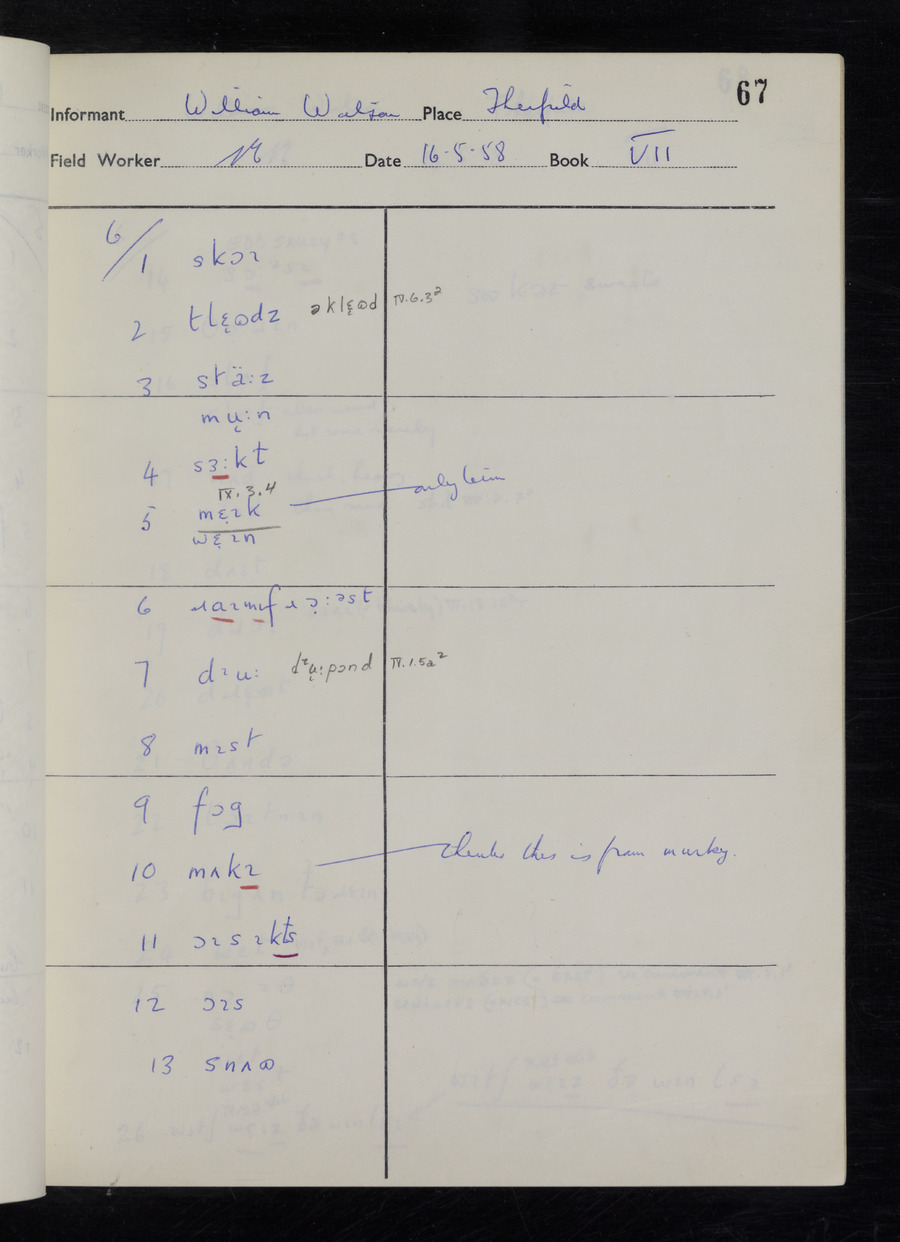 67
Informant William Watson Place Therfield
Field Worker Date 16-5-58 Book VII
6/1 skɔɪ
2 tlę̈ɷdz əklɛ̨ɷd IV.6.3²
3 stä:z
mu̜:n
4 sɜ:kt
IX.3.4
5 mɛ̨ɪk only term
wɛ̨ɪn
6
7 dɪu: dɪu̜:pɔnd IV.1.5a²
8 mɪst
9 fɔg
10 mʌkɪ thinks this is from murky.
11 ɔɪsɪkts
12 ɔɪs
13 snʌɷ